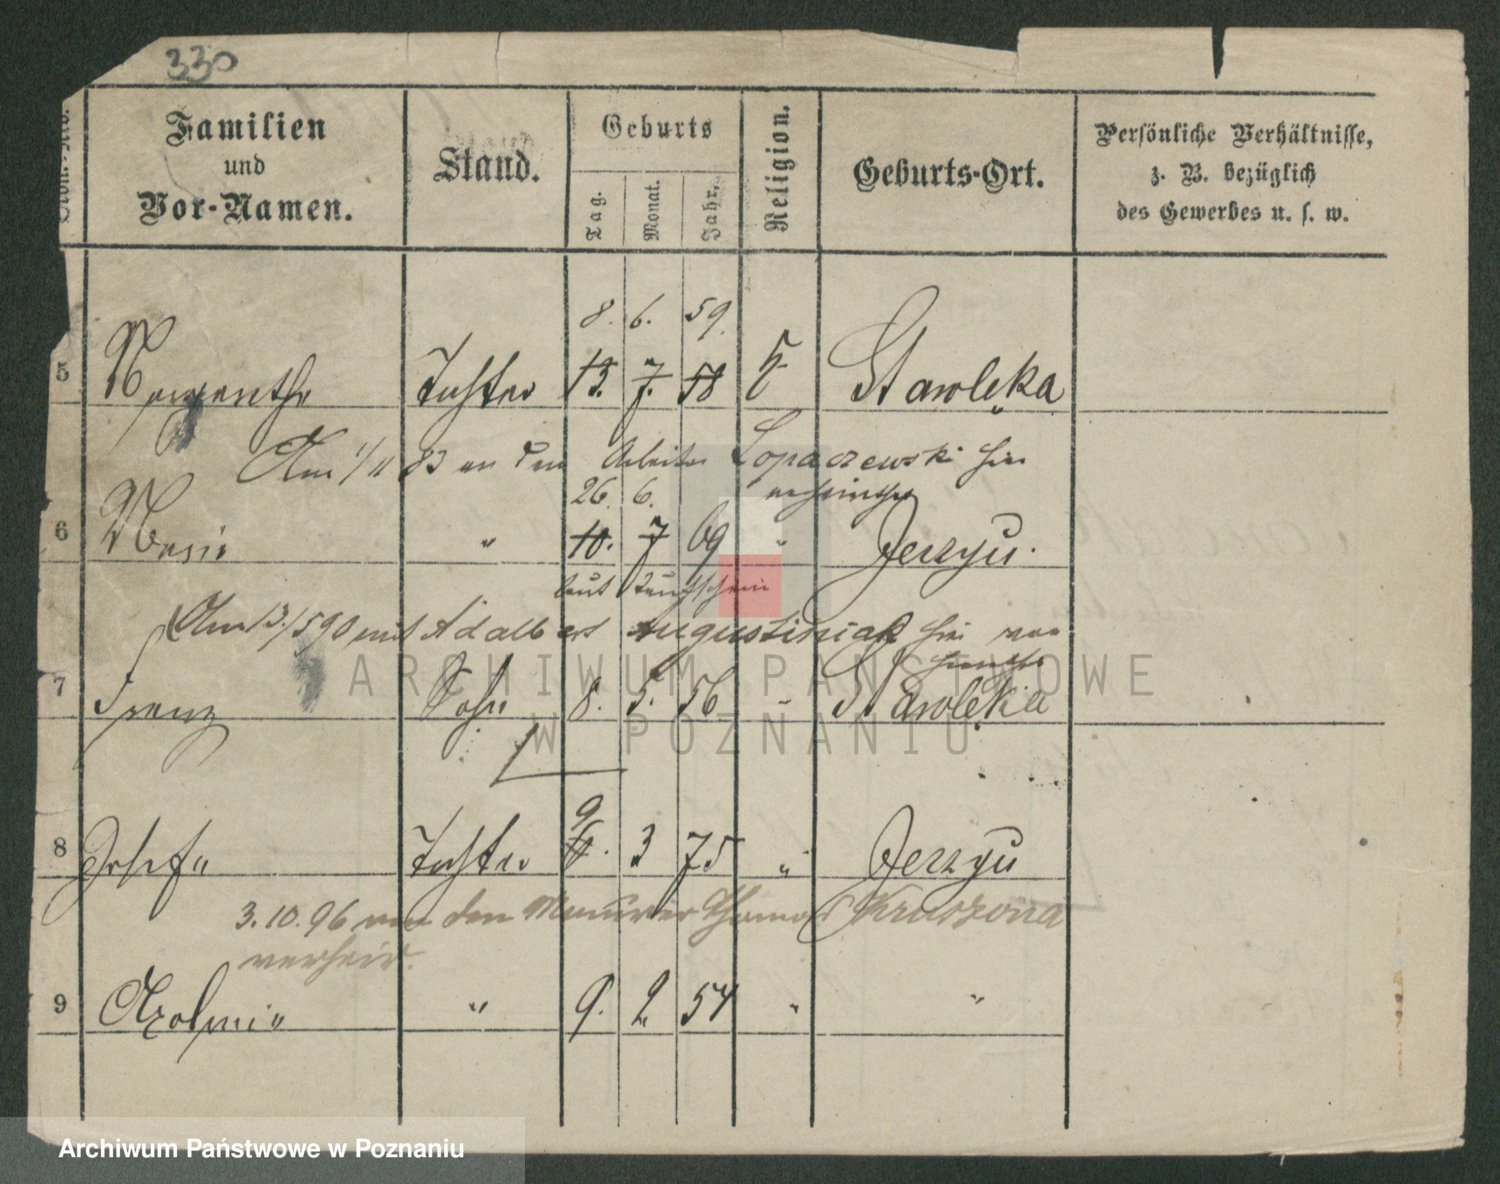 330
Familien
und
Vor-Namen.
Stand.
Geburts
Tag.
Monat.
Jahr.
Religion.
Geburts-Ort.
Persönliche Verhältnisse,
z. B. bezüglich
des Gewerbes u. s. w.
8. 6. 59.
5 Margaretha Tochter 13. 7. 58 k Starolęka
Am 1/11 83 an den Arbeiter Lopaczewski hier
26. 6. verheirathet
6 Maria " 10. 7 69 " Jerzyce.
laut Taufschein
Am 13./5 90 mit Adalbert Augustiniak hier ver
heirathet
7 Franz Sohn 8. 5. 56 " Starolęka
9
8 Josefa Tochter 6. 3 75 " Jerzyce
3.10.96 an den Maurer Thomas
verheir.
9 Apolonia " 9. 2. 54 " "
ARCHIWUM PAŃSTWOWE
W POZNANIU
Archiwum Państwowe w Poznaniu